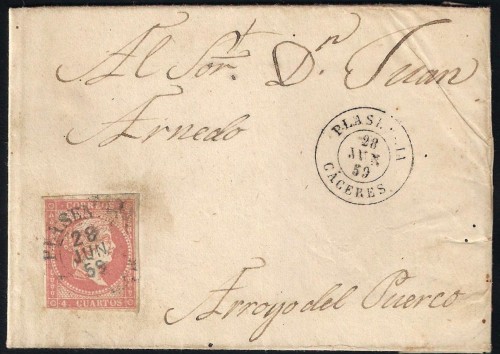 Al Sor. Dn. Juan
Arnedo
PLASENCIA
28
JUN
59
CÁCERES.
CORREOS
PLASEN
28
JUN.
59
4 CUARTOS
Arroyo del Puerco